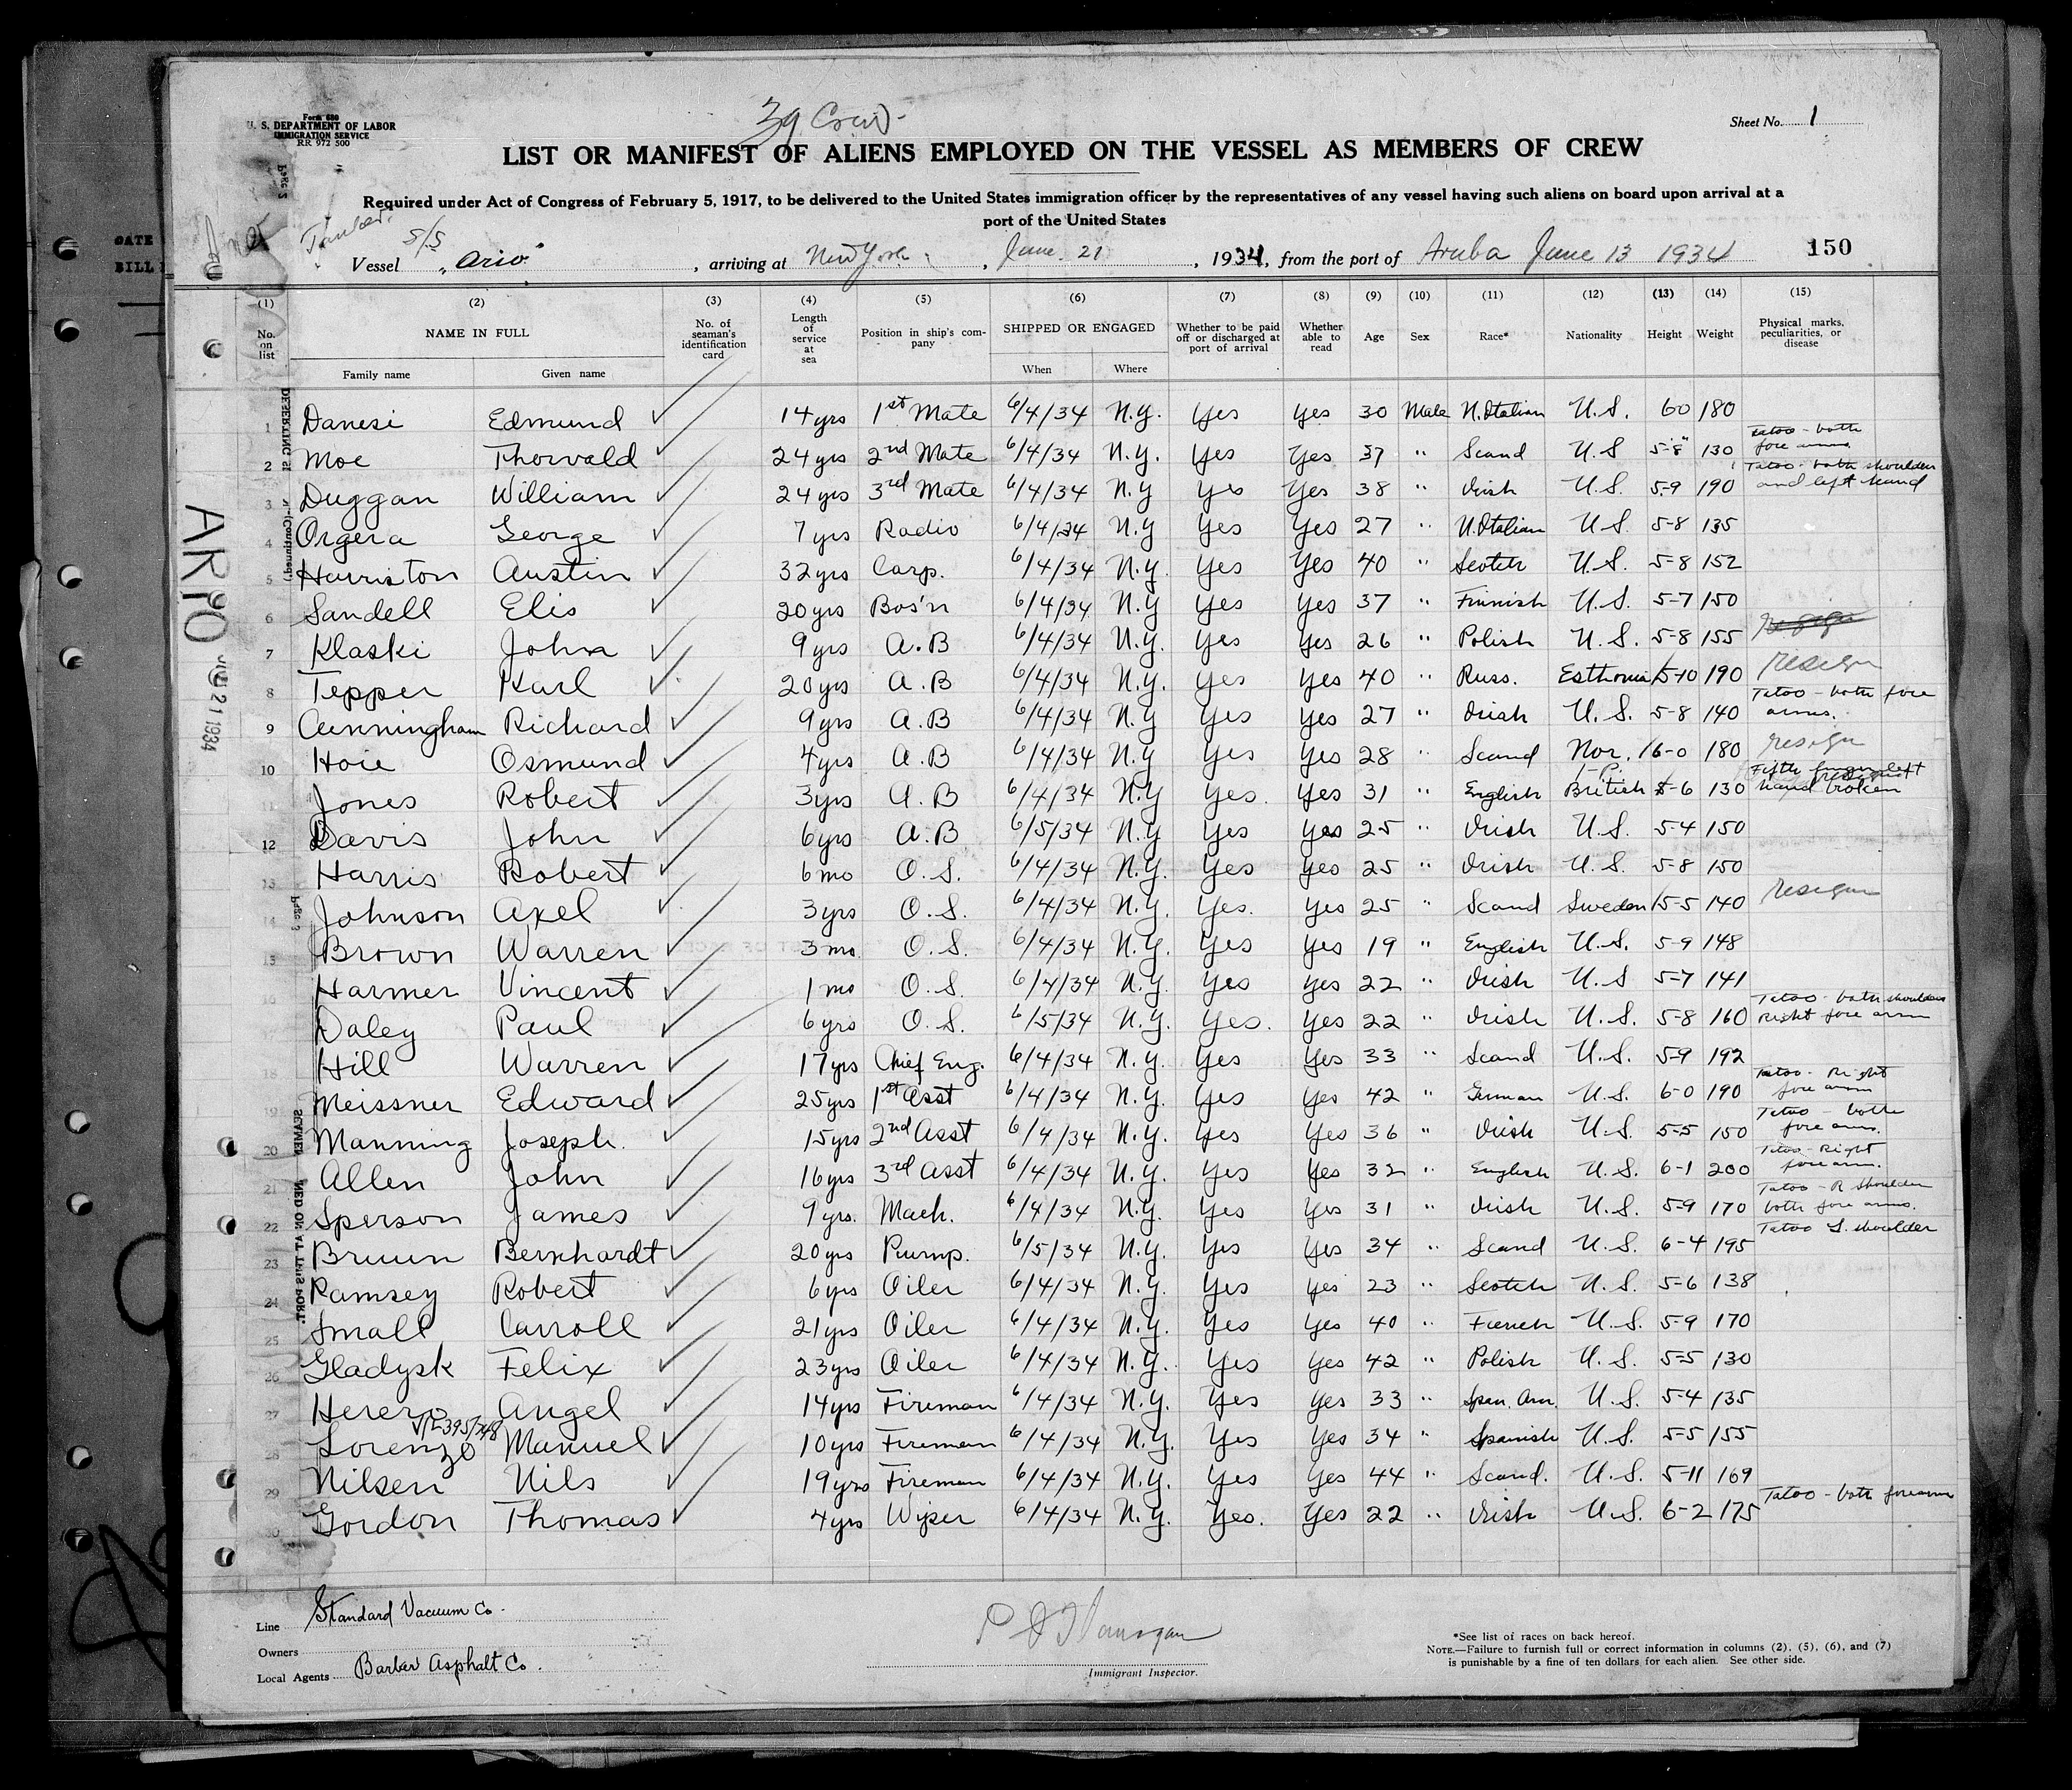 39 Crew
Form 680
U. S. DEPARTMENT OF LABOR
IMMIGRATION SERVICE
RR 972 500
Sheet No. 1
LIST OR MANIFEST OF ALIENS EMPLOYED ON THE VESSEL AS MEMBERS OF CREW
Required under Act of Congress of February 5, 1917, to be delivered to the United States immigration officer by the representatives of any vessel having such aliens on board upon arrival at a
port of the United States
Tanker
Vessel S/S "Ario", arriving at New York, June 21, 1934, from the port of Aruba June 13 1934
150
(1) (2) (3) (4) (5) (6) (7) (8) (9) (10) (11) (12) (13) (14) (15)
No. on list NAME IN FULL No. of seaman's identification card Length of service at sea Position in ship's company SHIPPED OR ENGAGED Whether to be paid off or discharged at port of arrival Whether able to read Age Sex Race* Nationality Height Weight Physical marks, peculiarities, or disease
Family name Given name When Where
1 Danesi Edmund 14yrs 1st Mate 6/4/34 N.Y. Yes Yes 30 Male N.Italian U.S. 60 180
2 Moe Thorvald 24yrs 2nd Mate 6/4/34 N.Y. Yes Yes 37 " Scand U.S 5-8" 130 Tatoo - both fore arms
3 Duggan William 24yrs 3rd Mate 6/4/34 N.Y Yes Yes 38 " Irish U.S. 5-9 190 Tatoo - both shoulders and left hand
4 Orgera George 7yrs Radio 6/4/34 N.Y Yes Yes 27 " N.Italian U.S. 5-8 135
5 Harriston Austin 32yrs Carp. 6/4/34 N.Y. Yes Yes 40 " Scotch U.S. 5-8 152
6 Sandell Elis 20yrs Bos'n 6/4/34 N.Y Yes Yes 37 " Finnish U.S. 5-7 150
7 Klaski John 9yrs A.B 6/4/34 N.Y. Yes Yes 26 " Polish U.S. 5-8 155
8 Tepper Karl 20yrs A.B 6/4/34 N.Y. Yes Yes 40 " Russ. Esthonia 5-10 190 resign
9 Cunningham Richard 9yrs A.B 6/4/34 N.Y Yes Yes 27 " Irish U.S. 5-8 140 Tatoo - both fore arms.
10 Hoie Osmund 4yrs A.B 6/4/34 N.Y Yes Yes 28 " Scand Nor. 6-0 180 resign
11 Jones Robert 3yrs A.B 6/4/34 N.Y Yes. Yes 31 " English British 5-6 130 Fifth finger left hand broken
12 Davis John 6yrs A.B 6/5/34 N.Y Yes Yes 25 " Irish U.S. 5-4 150
13 Harris Robert 6 mo O.S. 6/4/34 N.Y. Yes Yes 25 " Irish U.S 5-8 150
14 Johnson Axel 3yrs O.S. 6/4/34 N.Y. Yes. Yes 25 " Scand Sweden 5-5 140 resign
15 Brown Warren 3 mo O.S. 6/4/34 N.Y. Yes Yes 19 " English U.S. 5-9 148
16 Harmer Vincent 1 mo O.S. 6/4/34 N.Y. Yes Yes 22 " Irish U.S 5-7 141
17 Daley Paul 6yrs O.S. 6/5/34 N.Y. Yes. Yes 22 " Irish U.S. 5-8 160 Tatoo - both shoulders Right fore arm
18 Hill Warren 17yrs Chief Eng. 6/4/34 N.Y. Yes Yes 33 " Scand U.S. 5-9 192
19 Meissner Edward 25yrs 1st Asst 6/4/34 N.Y. Yes Yes 42 " German U.S. 6-0 190 Tatoo - Right fore arm
20 Manning Joseph. 15yrs 2nd Asst 6/4/34 N.Y. Yes Yes 36 " Irish U.S. 5-5 150 Tatoo - both fore arms.
21 Allen John 16yrs 3rd Asst 6/4/34 N.Y. Yes Yes 32 " English U.S. 6-1 200 Tatoo - Right fore arm.
22 Sperson James 9yrs. Mach. 6/4/34 N.Y. Yes Yes 31 " Irish U.S. 5-9 170 Tatoo - R shoulder both fore arms.
23 Bruun Bernhardt 20yrs Pump. 6/5/34 N.Y. Yes Yes 34 " Scand U.S. 6-4 195 Tatoo L. shoulder
24 Ramsey Robert 6yrs Oiler 6/4/34 N.Y. Yes Yes 23 " Scotch U.S. 5-6 138
25 Small Carroll 21yrs Oiler 6/4/34 N.Y. Yes Yes 40 " French U.S. 5-9 170
26 Gladysk Felix 23yrs Oiler 6/4/34 N.Y. Yes Yes 42 " Polish U.S. 5-5 130
27 Herero Angel 14yrs Fireman 6/4/34 N.Y. Yes Yes 33 " Span. Am. U.S. 5-4 135
28 Lorenzo Manuel 10yrs Fireman 6/4/34 N.Y. Yes Yes 34 " Spanish U.S. 5-5 155
29 Nilsen Nils 19yrs Fireman 6/4/34 N.Y. Yes Yes 44 " Scand. U.S. 5-11 169
30 Gordon Thomas 4yrs Wiper 6/4/34 N.Y. Yes. Yes 22 " Irish U.S. 6-2 175 Tatoo - both forearm
ARIO
JUN 21 1934
Line Standard Vacuum Co.
Owners
Local Agents Barber Asphalt Co.
Immigrant Inspector.
*See list of races on back hereof.
NOTE.—Failure to furnish full or correct information in columns (2), (5), (6), and (7)
is punishable by a fine of ten dollars for each alien. See other side.